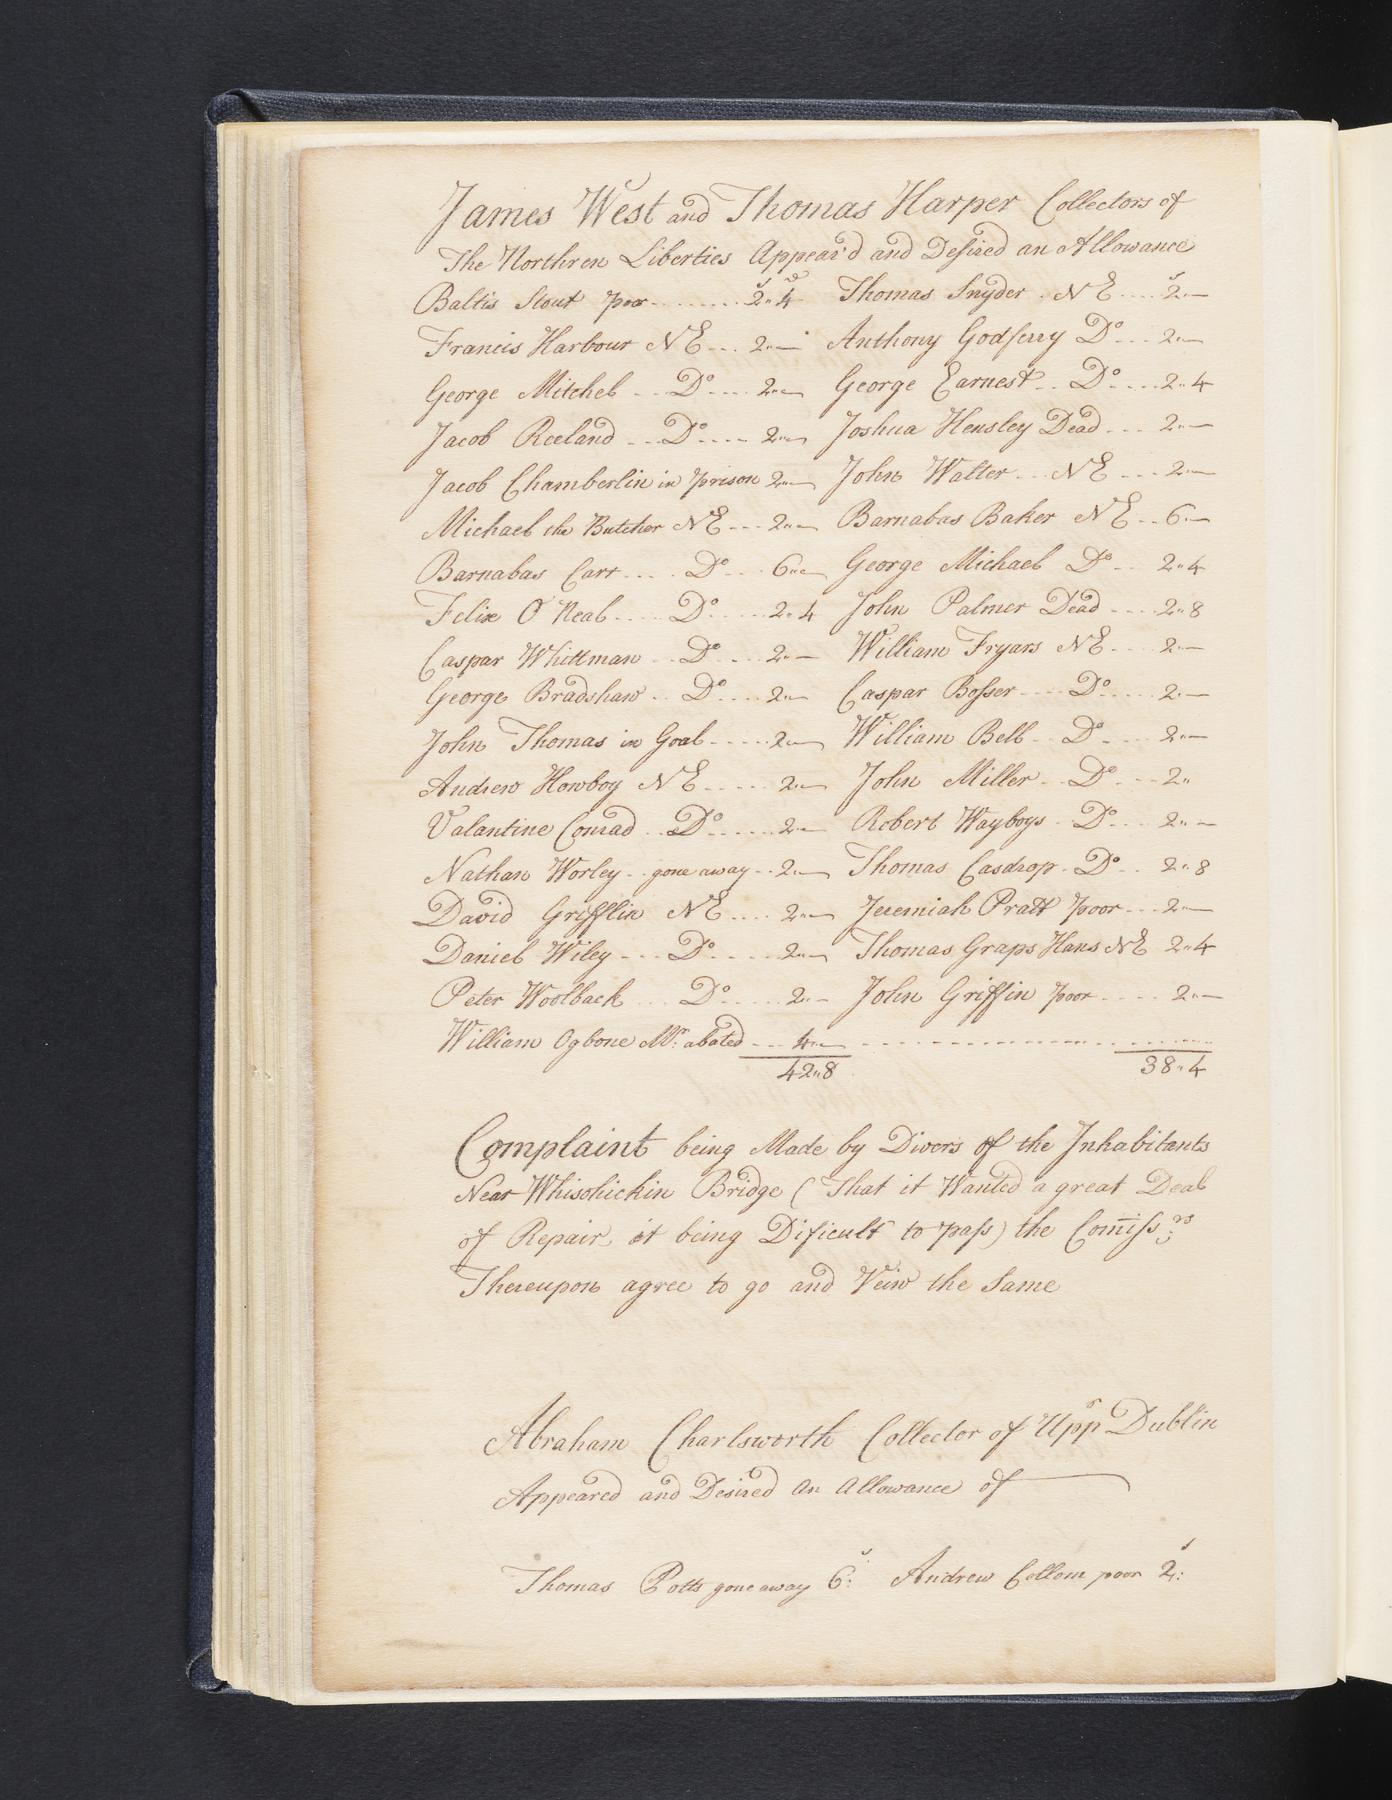 James West and Thomas Harper Collectors of
The Northren Liberties Appear'd and Desired an Allowance
Baltis Stout poor ........ 2"4 Thomas Snyder . NE .... 2"—
Francis Harbour NE ... 2"— Anthony Godferry Do ... 2"—
George Mitchel ... Do .... 2"— George Earnest .. Do .... 2"4
Jacob Reeland ... Do .... 2"— Joshua Hensley Dead ... 2"—
Jacob Chamberlin in prison 2"— John Walter ... NE ... 2"—
Michael the Butcher NE ... 2"— Barnabas Baker NE .. 6"—
Barnabas Carr .... Do ... 6"— George Michael Do .. 2"4
Felix O'Neal ..... Do ..... 2"4 John Palmer Dead .... 2"8
Caspar Whittman .. Do .... 2"— William Fryars NE .... 2"—
George Bradshaw .. Do .... 2"— Caspar Bosser .... Do ..... 2"—
John Thomas in Goal ..... 2"— William Bell .. Do .... 2"—
Andrew Howboy NE ..... 2"— John Miller .. Do ... 2"
Valantine Conrad .. Do ...... 2"— Robert Wayboys .. Do .... 2"—
Nathan Worley .. gone away .. 2"— Thomas Casdrop . Do .. 2"8
David Grifflin NE .... 2"— Jeremiah Pratt poor ... 2"—
Daniel Wiley ... Do ..... 2"— Thomas Graps Hans NE 2"4
Peter Woolback ... Do ..... 2"— John Griffin poor .... 2"—
William Ogbone Mr: abated ... 4"—
42"8 38"4
Complaint being Made by Divers of the Inhabitants
Near Whisohickin Bridge (That it Wanted a great Deal
of Repair, it being Dificult to pass) the Comiss:rs
Thereupon agree to go and Veiw the Same
Abraham Charlsworth Collector of Uppr Dublin
Appeared and Desired An Allowance of
Thomas Potts gone away 6s: Andrew Collom poor 2s: